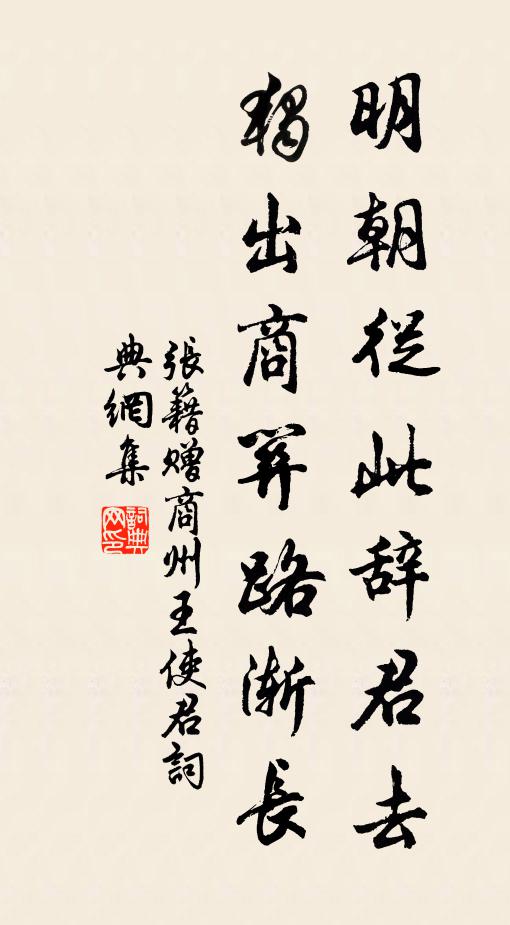 明朝從此辞君去
獨出商関路漸長
張籍赠商州王使君詞
典網集
詞典
网印